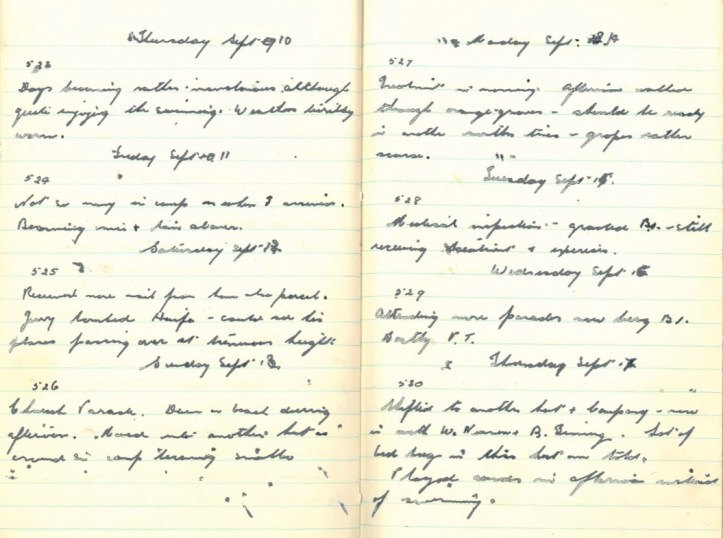 Thursday Sept 10
523
Days becoming rather monotonous although
quite enjoying the swimming. Weather terribly
warm.
Friday Sept 11
524
Not so many in camp as when I arrived.
Becoming and this
Saturday Sept 12
525
Received more mail from home also parcel.
Jerry bombed Haifa - could see his
planes passing over at tremendous height.
Sunday Sept 13
526
Church Parade. Down on beach during
afternoon. Moved into another hut as
crowd in camp becoming smaller
Monday Sept. 14
527
Treatment in morning. Afternoon walked
through orange groves - should be ready
in another months time - grapes rather
scarce.
Tuesday Sept 15.
528
Medical inspection - granted B1. - still
receiving treatment & exercise.
Wednesday Sept 16
529
Attending more parades now being B1.
Mostly P.T.
Thursday Sept 17
530
Shifted to another hut & Company - now
in with W. & B. Lot of
bed bugs in this hut am told.
Played cards in afternoon instead
of swimming.